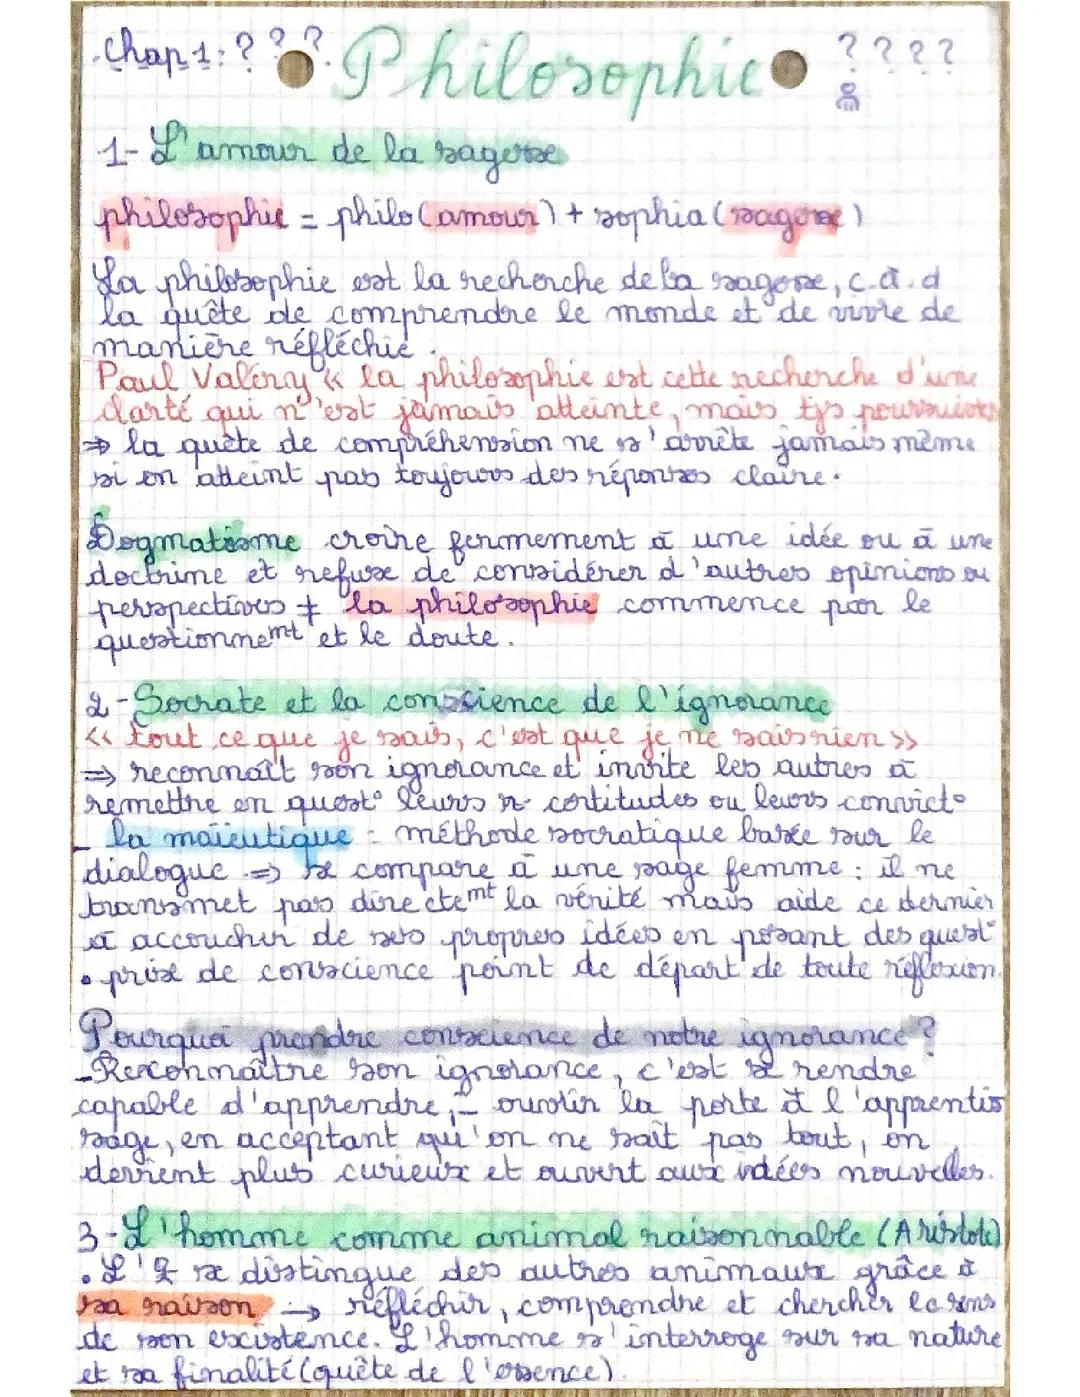 Chap 1: ? ? ? Philosophie ? ? ? ?
1- L'amour de la sagesse
philosophie = philo (amour) + sophia (sagesse)
La philosophie est la recherche de la sagesse, c.à.d
la quête de comprendre le monde et de vivre de
manière réfléchie.
Paul Valéry « la philosophie est cette recherche d'une
clarté qui n'est jamais atteinte, mais tjs poursuivie
⇒ la quête de compréhension ne s'arrête jamais même
si on atteint pas toujours des réponses claire.
Dogmatisme croire fermement à une idée ou à une
doctrine et refuse de considérer d'autres opinions ou
perspectives ≠ la philosophie commence par le
questionnemt et le doute.
2- Socrate et la conscience de l'ignorance
« tout ce que je sais, c'est que je ne sais rien »
⇒ reconnaît son ignorance et invite les autres à
remettre en quest° leurs certitudes ou leurs convict°
- la maïeutique = méthode socratique basée sur le
dialogue ⇒ se compare à une sage femme : il ne
transmet pas directemt la vérité mais aide ce dernier
à accoucher de ses propres idées en posant des quest°
• prise de conscience point de départ de toute réflexion.
Pourquoi prendre conscience de notre ignorance ?
- Reconnaître son ignorance, c'est se rendre
capable d'apprendre, - ouvrir la porte à l'apprentis
sage, en acceptant qu'on ne sait pas tout, on
devient plus curieux et ouvert aux idées nouvelles.
3- L'homme comme animal raisonnable (Aristote)
• L' se distingue des autres animaux grâce à
sa raison → réfléchir, comprendre et chercher le sens
de son existence. L'homme s'interroge sur sa nature
et sa finalité (quête de l'essence).